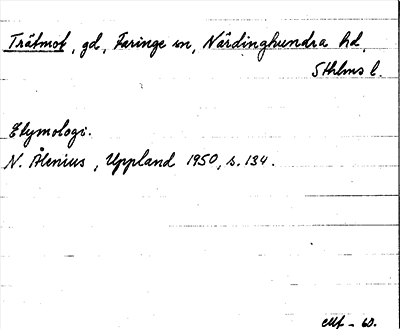 Trätmot, gd, Faringe sn, Närdinghundra hd,
Sthlms l.
Etymologi.
N. Ålenius, Uppland 1950, s. 134.